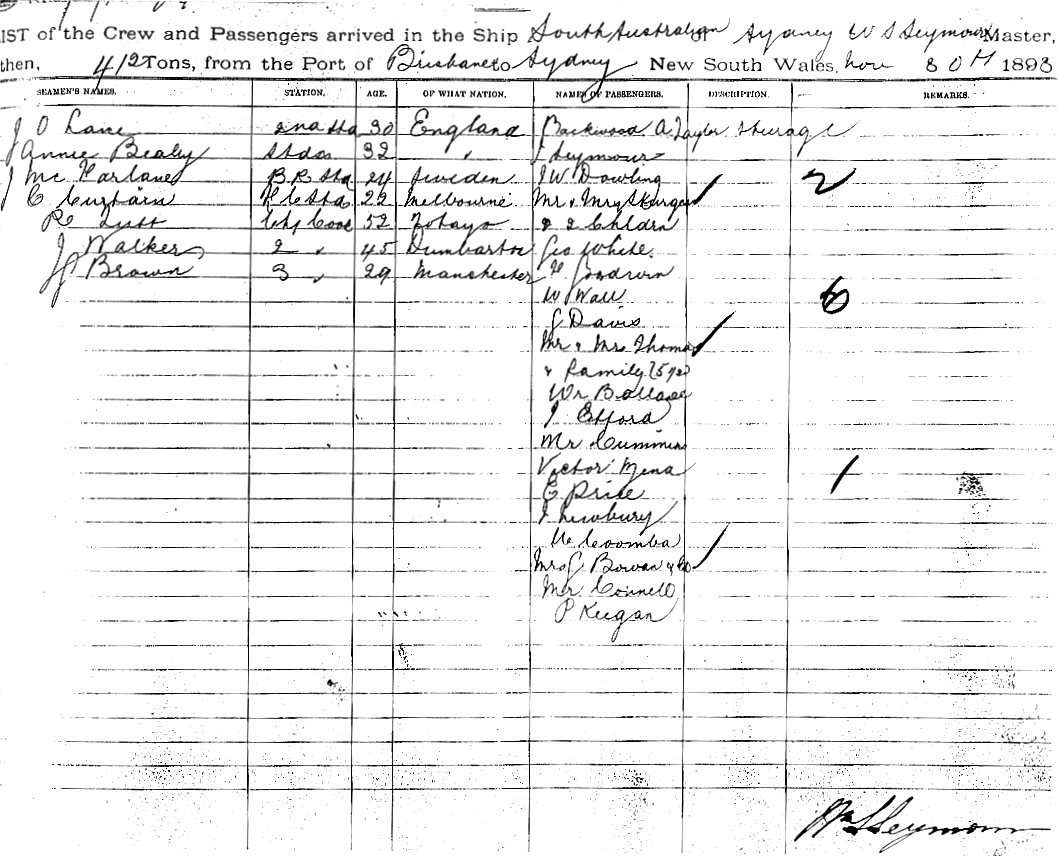 IST of the Crew and Passengers arrived in the Ship South Australian of Sydney W S Seymour Master,
then, 412 Tons, from the Port of Brisbane to Sydney New South Wales, Nov 30th 1893
SEAMEN'S NAMES. STATION. AGE. OF WHAT NATION. NAMES OF PASSENGERS. DESCRIPTION. REMARKS.
J O Lane 2nd Std 30 England Backwood A. Taylor Steerage
Annie Bealey Stdss 32 " J Seymour
J McFarlane B R Std 24 Sweden J W Dowling 2
C Curtain P C Std 22 Melbourne Mr & Mrs
R Chf Cook 52 Tobago & 2 Childrn
J Walker 2 " 45 Dumbarton Geo White
J Brown 3 " 29 Manchester F Goodwin
W Wall 6
G Davis
Mr & Mrs Thomas
& Family
Wr Ballace
J Efford
Mr Cummins
Victor Mena 1
E Price
J Newbury
Coomba
Mrs G Bowan &
Mr Connell
P Keegan
Wm S Seymour